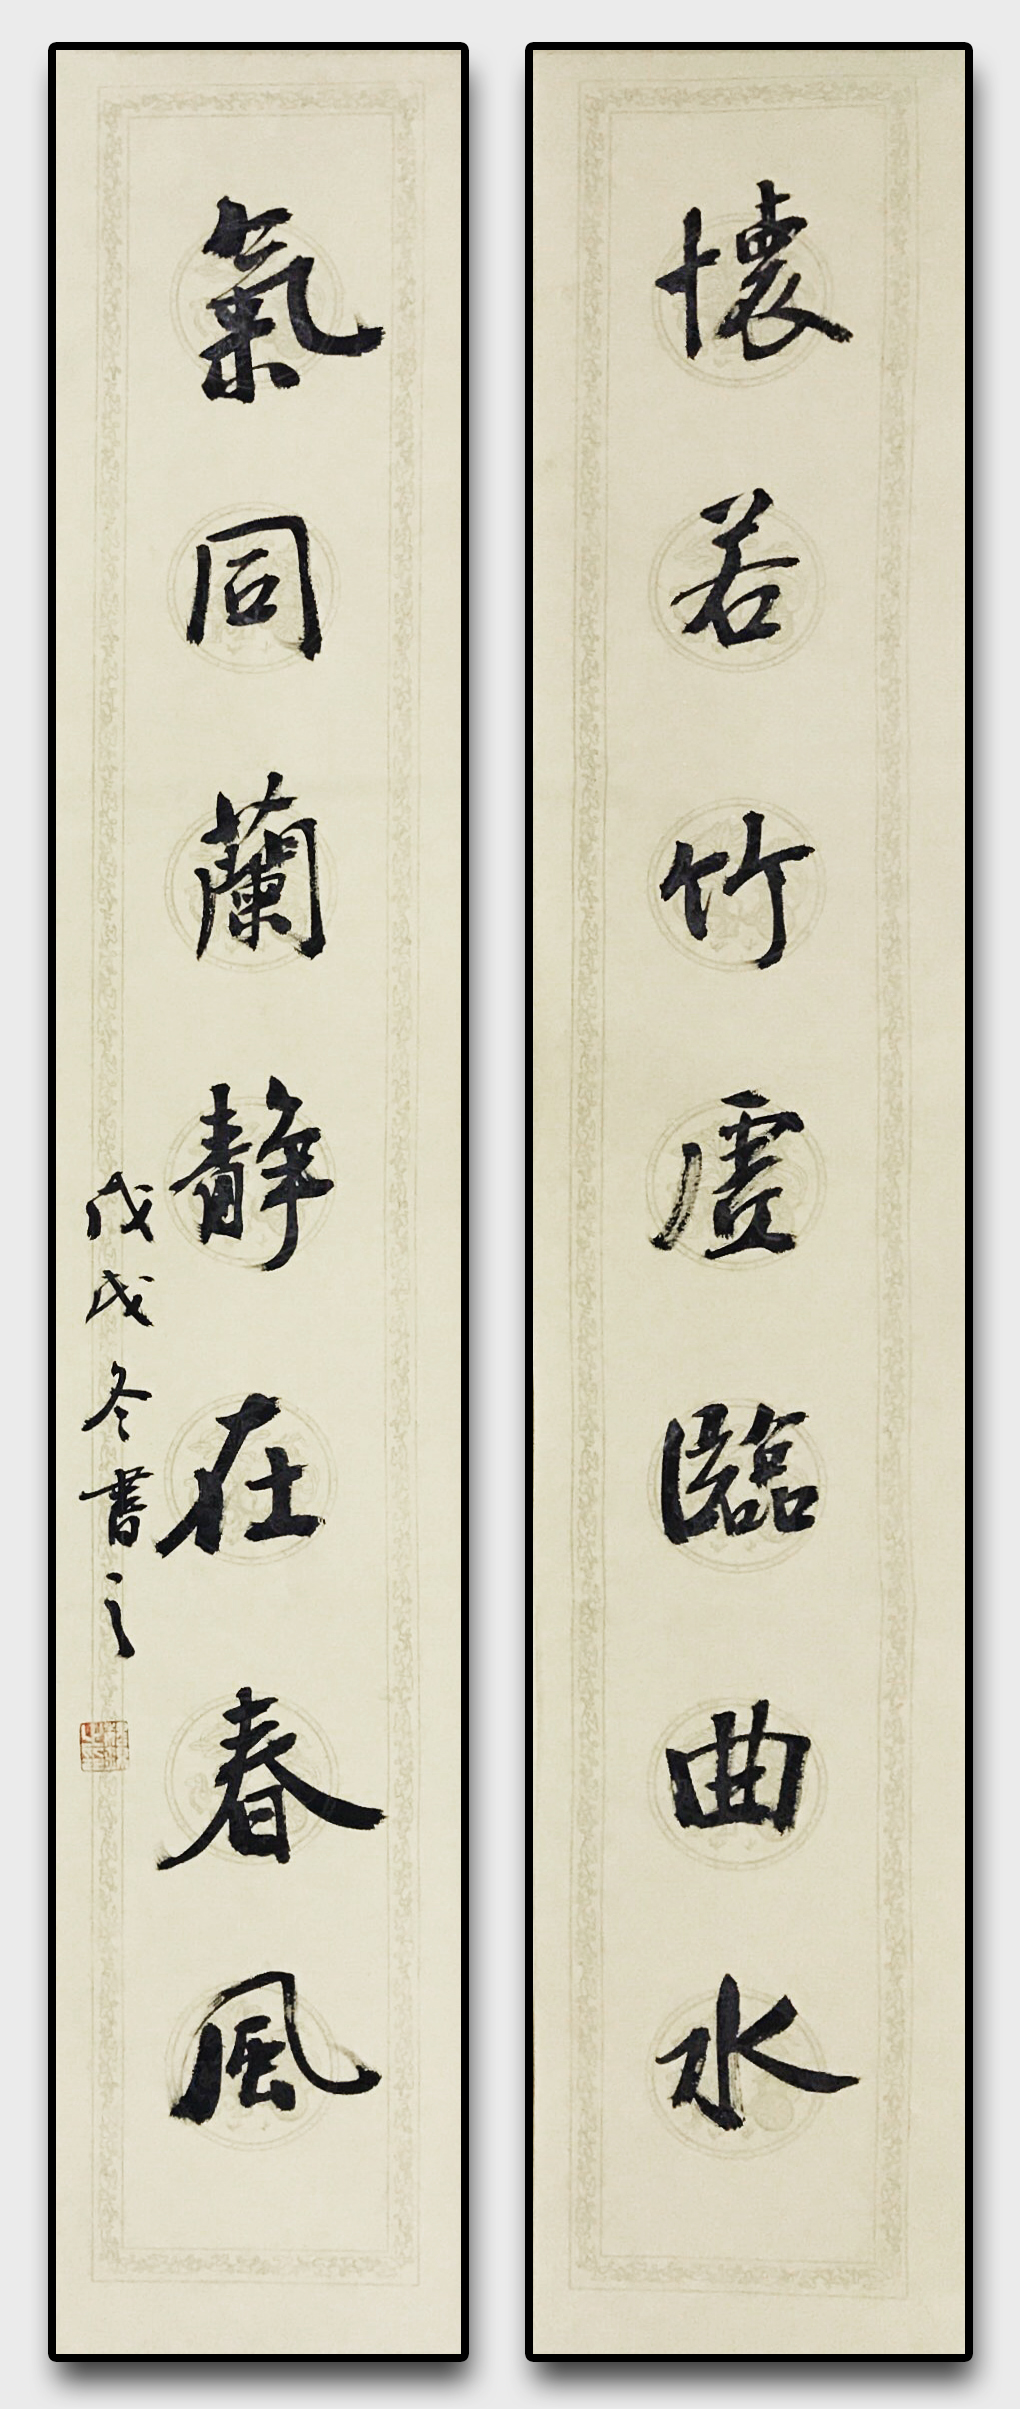 懷若竹虛臨曲水
氣同蘭靜在春風
戊戌冬書之